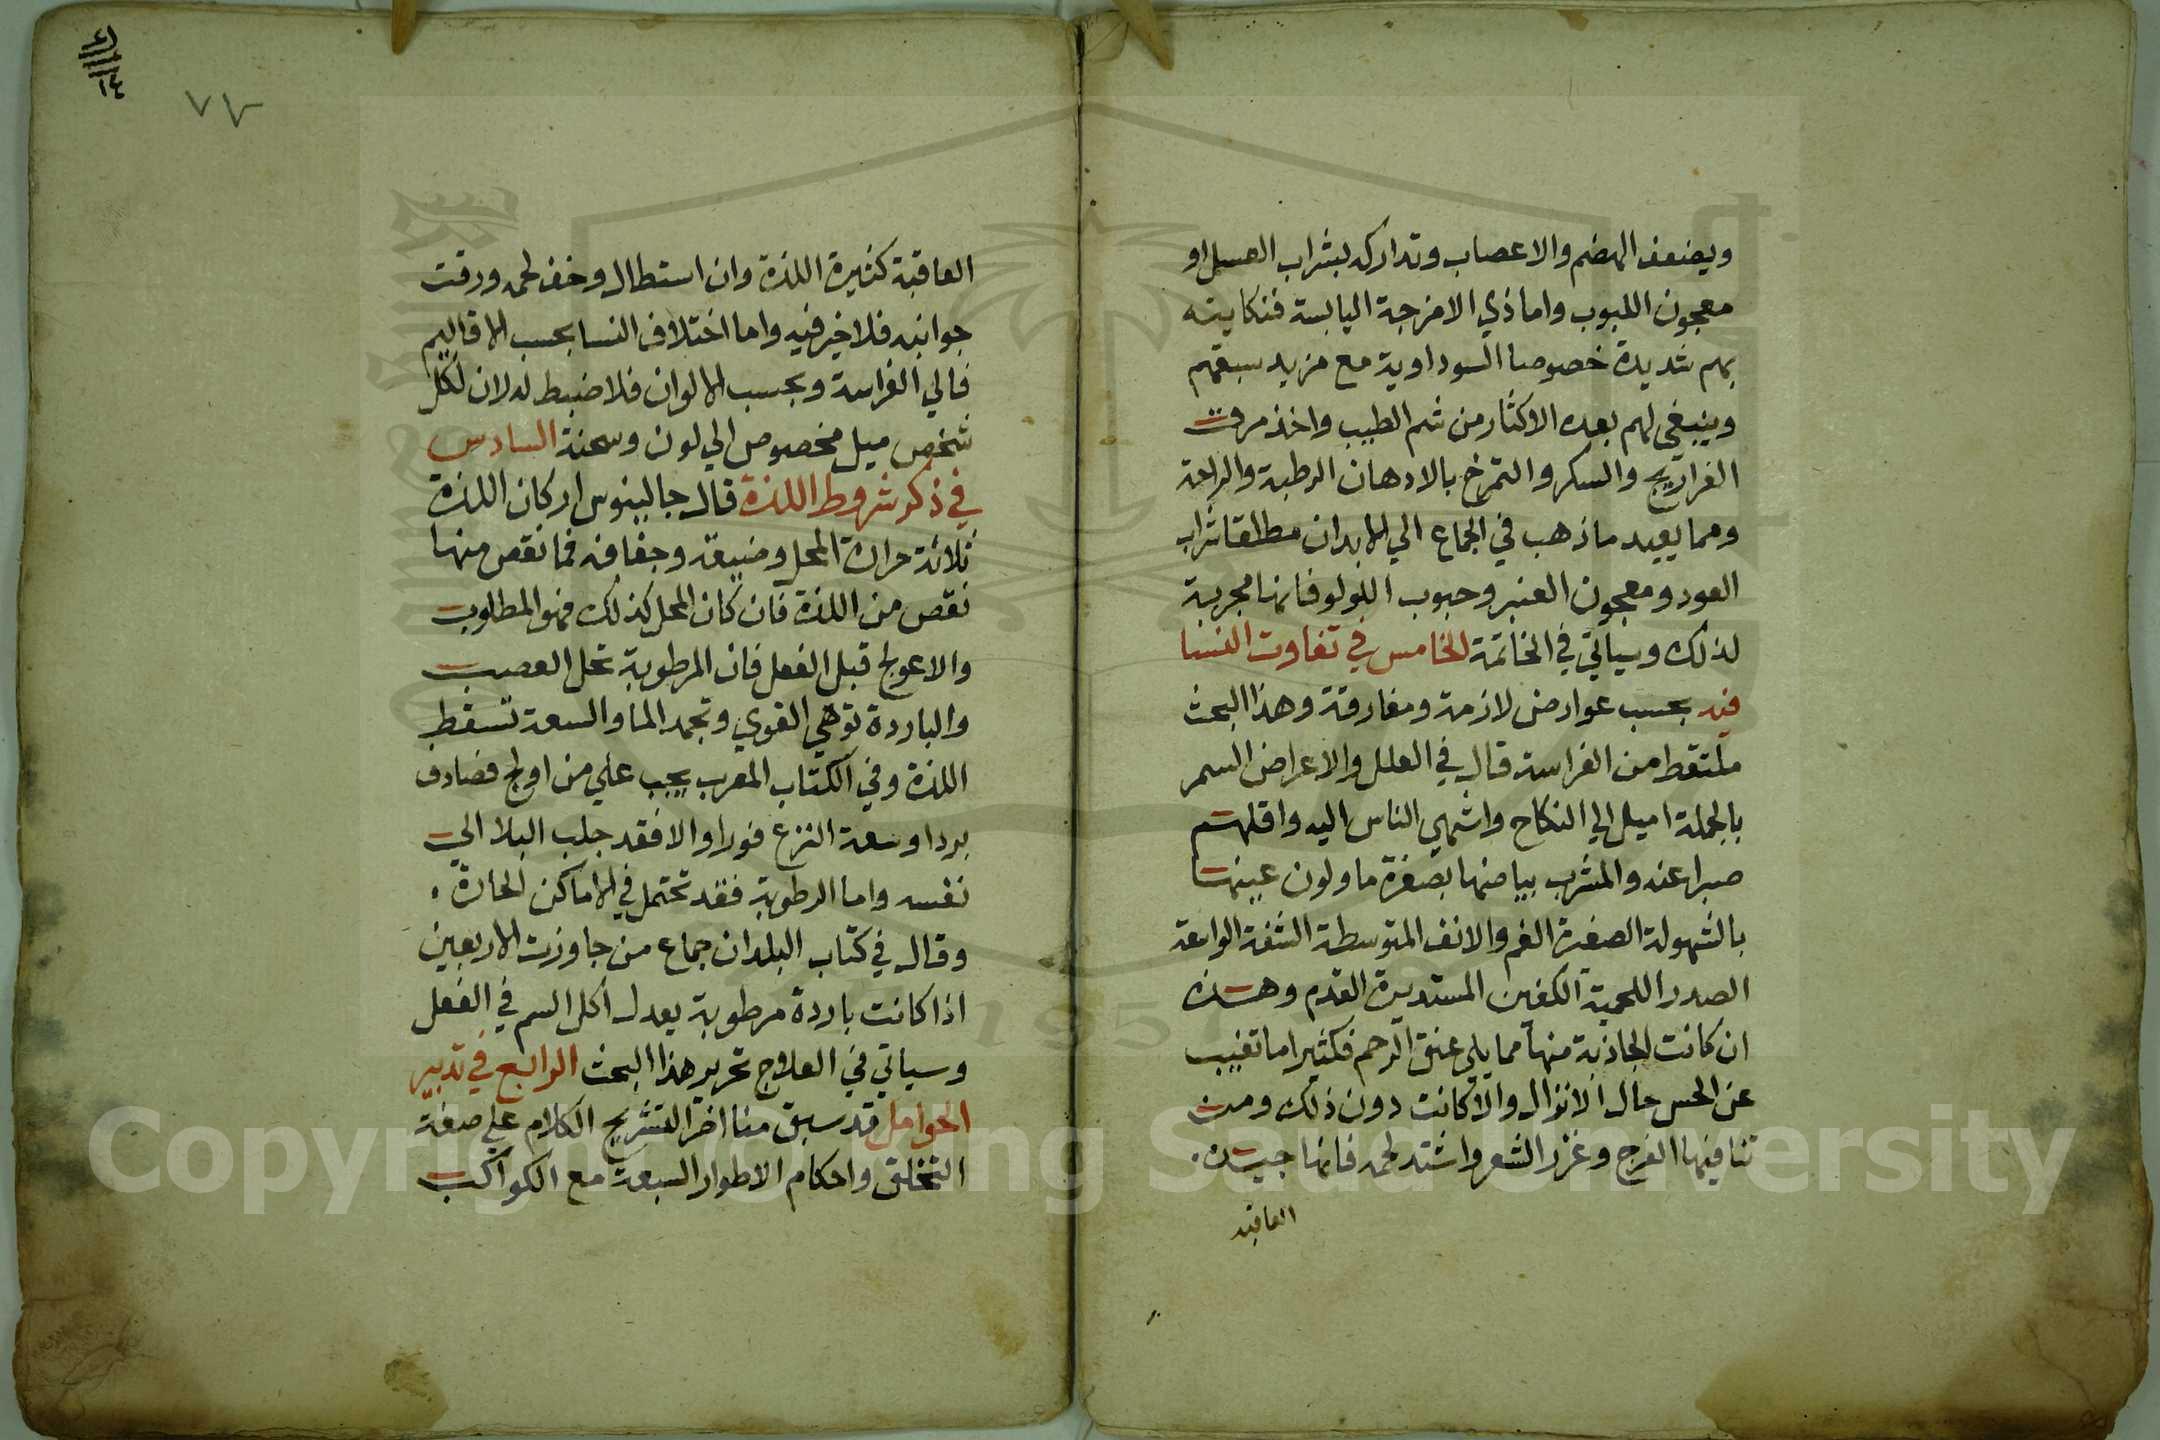 ويضعف الهضم والاعصاب وتداركه بشراب العسل او
معجون اللبوب واما ذي الامزجة اليابسة فنكايته
بهم شديدة خصوصا السوداوية مع مزيد سبقهم
وينبغي لهم بعده الاكثار من شم الطيب واخذ مرقة
الفراريج والسكر والتمرخ بالادهان الرطبة والراحة
ومما يعيد ما ذهب في الجماع الي الابدان مطلقا شراب
العود ومعجون العنبر وحبوب اللولو فانها مجربة
لذلك وسياتي في الخاتمة الخامس في تفاوت النسا
فيه بحسب عوارض لازمة ومفارقة وهذا البحث
ملتقط من الفراسة قال في العلل والاعراض السمر
بالجملة اميل الي النكاح واشهي الناس اليه واقلهم
صبرا عنه والمشرب بياضها بصفرة ما ولون عينها
بالشهولة الصغيرة الفم والانف المتوسطة الشفة الواسعة
الصدر اللحمية الكفين المستديرة القدم وهذه
ان كانت الجاذبة منها مما يلي عنق الرحم فكثيرا ما تغيب
عن الحس حال الانزال والا كانت دون ذلك ومن
تنا فيها الفرج وغزر الشعر واشتد لحمه فانها جيدة
العاقبة
٧٧
العاقبة كثيرة اللذة وان استطال وخف لحمه ورقت
جوانبه فلا خير فيه واما اختلاف النسا بحسب الاقاليم
فالي الفراسة وبحسب الالوان فلا ضبط له لان لكل
شخص ميل مخصوص الي لون وسحنة السادس
في ذكر شروط اللذة قال جالينوس اركان اللذة
ثلاثة حرارة المحل وضيقه وجفافه فما نقص منها
نقص من اللذة فان كان المحل كذلك فهو المطلوب
والا عولج قبل الفعل فان المرطوبة تحل العصب
والباردة توهي القوي وتجمد الما والسعة تسقط
اللذة وفي الكتاب المعرب يجب علي من اولج فصادف
بردا وسعة النزع فورا والا فقد جلب البلا الي
نفسه واما الرطوبة فقد تحتمل في الاماكن الحارة
وقال في كتاب البلدان جماع من جاوزت الاربعين
اذا كانت باردة مرطوبة يعدل اكل السم في الفعل
وسياتي في العلاج تحرير هذا البحث الرابع في تدبير
الحوامل قد سبق منا اخر التشريح الكلام علي صفة
التخلق واحكام الاطوار السبعة مع الكواكب
Copyright © King Saud University
1957